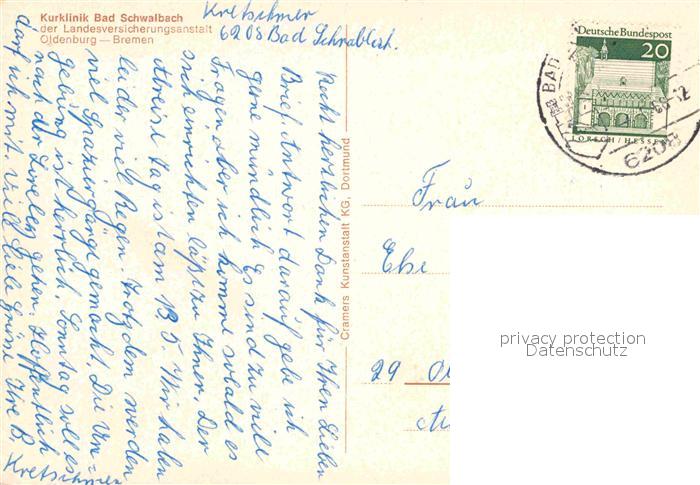 Kurklinik Bad Schwalbach
der Landesversicherungsanstalt
Oldenburg — Bremen
Kretschmer
6208 Bad Schwalbch.
Recht herzlichen Dank für Ihren Lieben
Brief. Antwort darauf gebe ich
gerne mündlich. Es sind zu viele
Fragen, aber ich komme sobald es
sich einrichten läßt zu Ihnen. Der
Abreise tag ist am 13.5. Wir haben
leider viel Regen. Trotzdem werden
viel Spaziergänge gemacht. Die Um=
gebung ist herrlich. Sonntag soll es
nach der gehen. Hoffentlich
darf ich mit. Viele liebe Grüsse Ihre B.
Kretschmer
Cramers Kunstanstalt KG, Dortmund
Deutsche Bundespost
20
LORSCH/HESSEN
BAD
6208
Frau
Else
29
privacy protection
Datenschutz